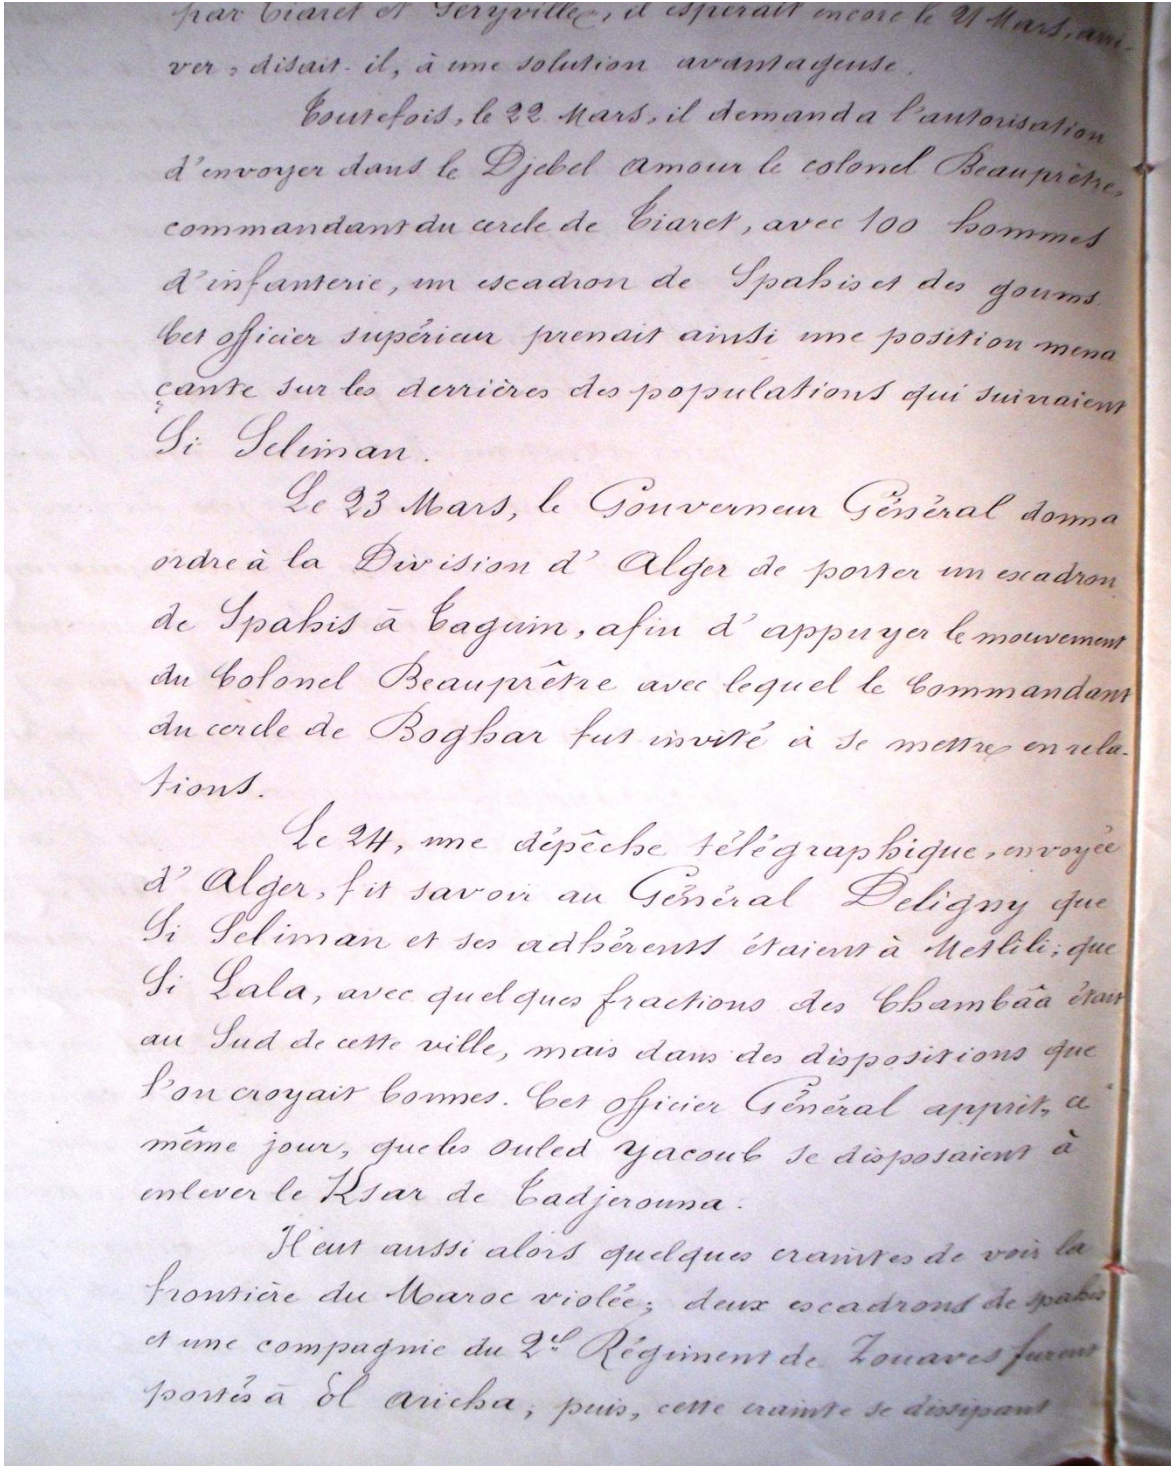 par Tiaret et Géryville, il espérait encore le 21 Mars, arri-
ver, disait-il, à une solution avantageuse.
Toutefois, le 22 Mars, il demanda l'autorisation
d'envoyer dans le Djebel Amour le colonel Beauprêtre,
commandant du cercle de Tiaret, avec 100 hommes
d'infanterie, un escadron de Spahis et des goums.
Cet officier supérieur prenait ainsi une position mena
çante sur les derrières des populations qui suivraient
Si Seliman.
Le 23 Mars, le Gouverneur Général donna
ordre à la Division d'Alger de porter un escadron
de Spahis à Taguin, afin d'appuyer le mouvement
du Colonel Beauprêtre avec lequel le Commandant
du cercle de Boghar fut invité à se mettre en rela-
tions.
Le 24, une dépêche télégraphique, envoyée
d'Alger, fit savoir au Général Deligny que
Si Seliman et ses adhérents étaient à Metlili; que
Si Lala, avec quelques fractions des Chambâa était
au Sud de cette ville, mais dans des dispositions que
l'on croyait bonnes. Cet officier Général apprit, ce
même jour, que les Ouled Yacoub se disposaient à
enlever le Ksar de Tadjerouna.
Il eut aussi alors quelques craintes de voir la
frontière du Maroc violée; deux escadrons de spahis
et une compagnie du 2e Régiment de Zouaves furent
portés à El Aricha; puis, cette crainte se dissipant